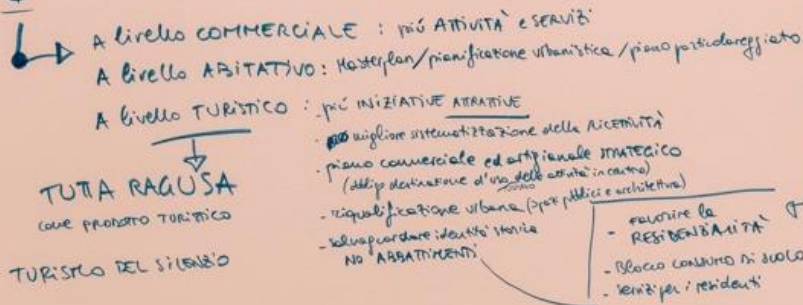 A livello COMMERCIALE : più ATTIVITÀ e SERVIZI
A livello ABITATIVO : Masterplan/pianificazione urbanistica/piano particolareggiato
A livello TURISTICO : più INIZIATIVE ATTRATTIVE
- migliore sistematizzazione della RICETTIVITÀ
- piano commerciale ed artigianale STRATEGICO
(obbligo destinazione d'uso delle attività in centro)
- riqualificazione urbana (spazi pubblici e architettura)
- salvaguardare identità storica
NO ABBATTIMENTI
TUTTA RAGUSA
COME PRODOTTO TURISTICO
TURISMO DEL SILENZIO
- FAVORIRE la
RESIDENZIALITÀ
- Blocco CONSUMO DI SUOLO
- Servizi per i residenti